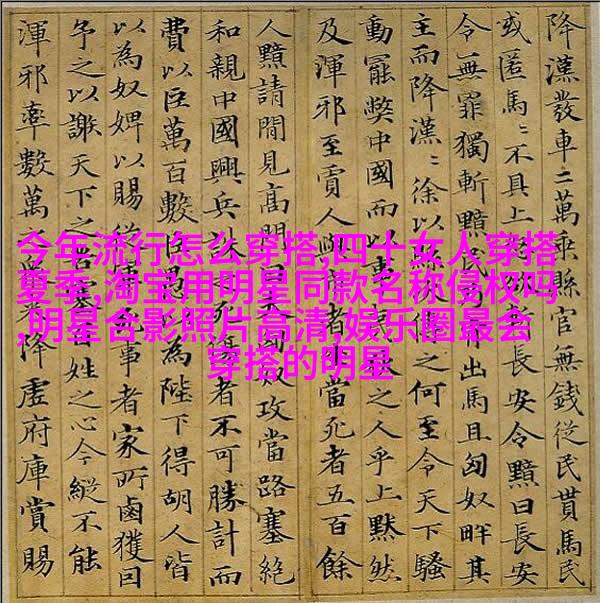 降漢發車二萬乘縣官無錢從民貰馬民
或匿馬〻不具上長安令黯曰長安
令無罪獨斬黯民出馬且匈奴畔其
主而降漢〻徐以縣之何至令天下騷
動罷獘中國而以事之人乎上黙然
及渾邪至賈人與者當死者五百餘
人黯請間見高門曰奴攻當路塞絕
和親中國興兵死傷者不可勝計而
費以巨萬百數臣愚以為陛下得胡人皆
以為奴婢以賜從軍死事者家所鹵獲因
予之以謝天下之苦塞百姓之心今縱不能
渾邪率數萬之降虛府庫賞賜
今年流行怎么穿搭,四十女人穿搭
夏季,淘宝用明星同款名称侵权吗
,明星合影照片高清,娱乐圈最会
穿搭的明星